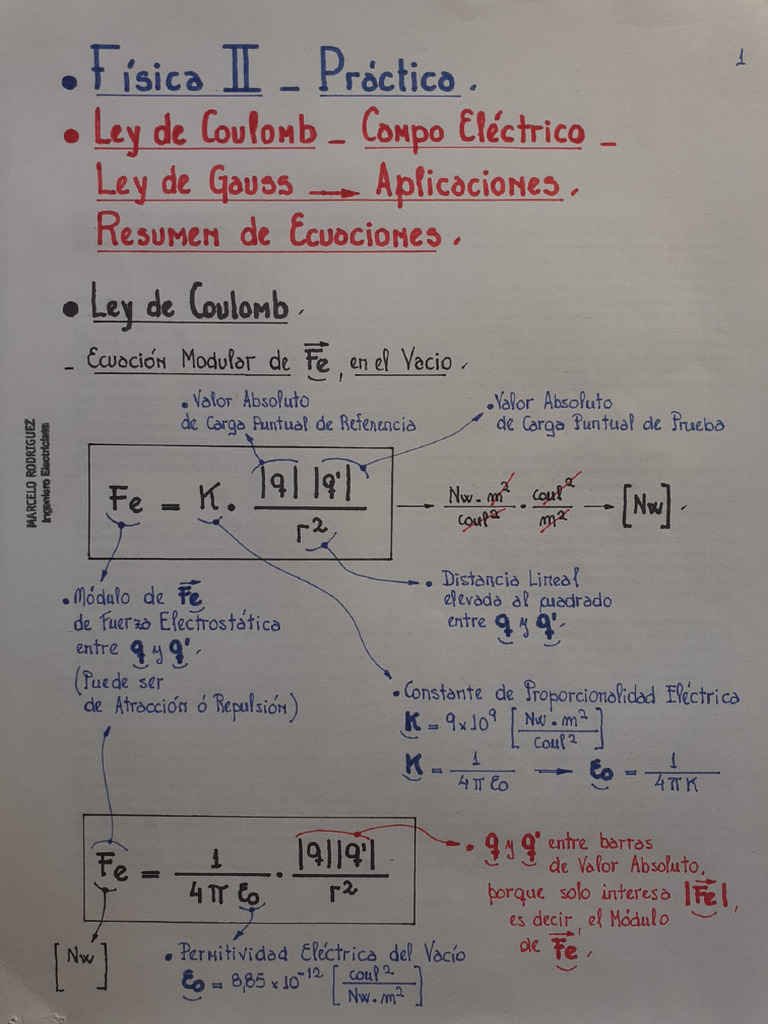 1
• Física II - Práctica.
• Ley de Coulomb - Campo Eléctrico -
Ley de Gauss → Aplicaciones.
Resumen de Ecuaciones.
• Ley de Coulomb.
- Ecuación Modular de Fe, en el Vacio.
• Valor Absoluto
de Carga Puntual de Referencia
• Valor Absoluto
de Carga Puntual de Prueba
Fe = K . |q| |q'| / r² → Nw . m² / coul² . coul² / m² → [Nw].
• Módulo de Fe
de Fuerza Electrostática
entre q y q'.
(Puede ser
de Atracción ó Repulsión)
• Distancia Lineal
elevada al cuadrado
entre q y q'.
• Constante de Proporcionalidad Eléctrica
K = 9x10⁹ [Nw . m² / Coul²]
K = 1 / 4π ε₀ → ε₀ = 1 / 4π K
Fe = 1 / 4π ε₀ . |q||q'| / r²
[Nw]
• q y q' entre barras
de Valor Absoluto,
porque solo interesa |Fe|,
es decir, el Módulo
de Fe.
• Permitividad Eléctrica del Vacío
ε₀ = 8,85 x 10⁻¹² [coul² / Nw. m²]
MARCELO RODRIGUEZ
Ingeniero Electricista